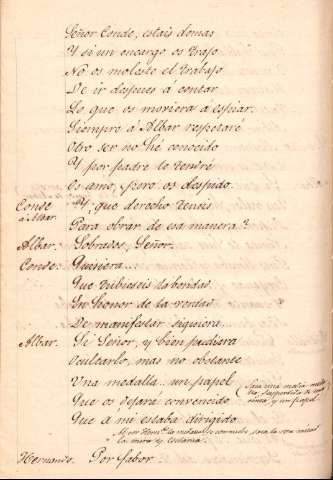 Señor Conde, estais demas
Y si un encargo os trajo
No os moleste el trabajo
De ir despues á contar
Lo que os moviera á espiar.
Siempre á Albar respetaré
Otro ser no hé conocido
Y por padre le tendré
Os amo, pero os despido.
Conde á Albar. Y, que derecho teneis
Para obrar de esa manera?
Albar. Sobrados, Señor.
Conde. Quisiera...
Que tubieseis la bondad
En honor de la verdad
De manifestar siquiera
Albar. Si Señor, y bien pudiera
Ocultarlo, mas no obstante
Una medalla.. un papel
Que os dejará convencido
Que á mi estaba dirigido.
Hernando. Por fabor